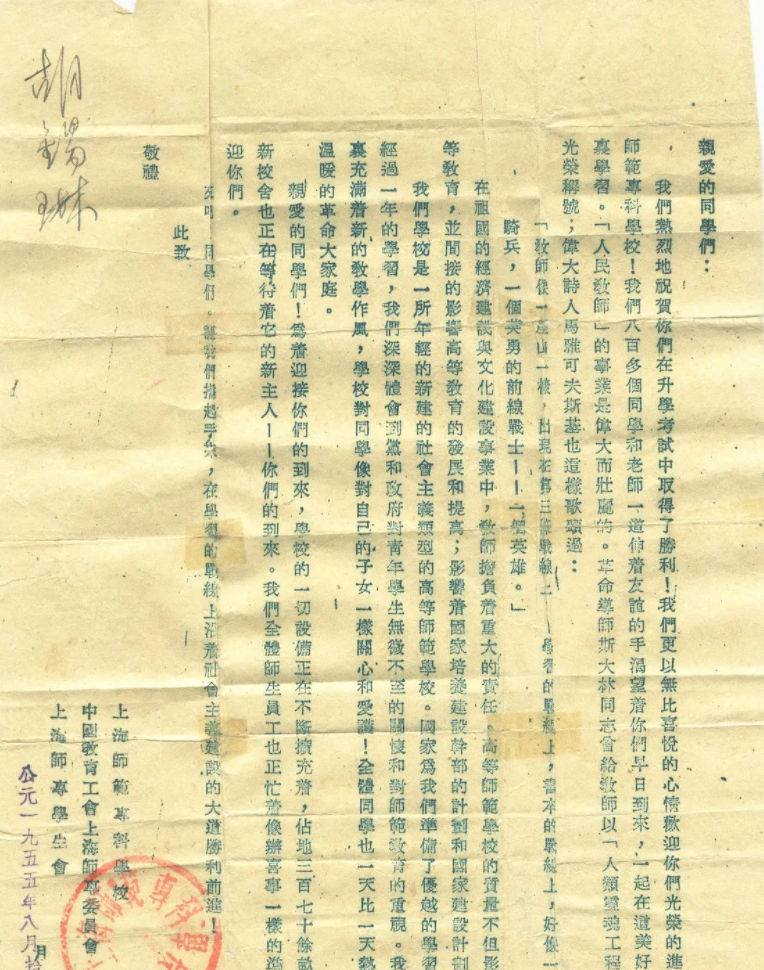 親愛的同學們：
我們熱烈地祝賀你們在升學考試中取得了勝利！我們更以無比喜悅的心情歡迎你們光榮的進
師範專科學校！我們八百多個同學和老師一道伸着友誼的手渴望着你們早日到來，一起在這美好
裏學習。「人民教師」的事業是偉大而壯麗的。革命導師斯大林同志曾給教師以「人類靈魂工程
光榮稱號；偉大詩人馬雅可夫斯基也這樣歌頌過：
「教師像一座山一樣，出現在第三條戰線上——學習的戰線上，書本的戰線上，好像一
騎兵，一個英勇的前線戰士——一個英雄。」
在祖國的經濟建設與文化建設事業中，教師擔負着重大的責任。高等師範學校的質量不但影
等教育，並間接的影響高等教育的發展和提高；影響着國家培養建設幹部的計劃和國家建設計劃
我們學校是一所年輕的新建的社會主義類型的高等師範學校。國家爲我們準備了優越的學習
經過一年的學習，我們深深體會到黨和政府對青年學生無微不至的關懷和對師範教育的重視。我
裏充滿着新的教學作風，學校對同學像對自己的子女一樣關心和愛護！全體同學也一天比一天熱
溫暖的革命大家庭。
親愛的同學們！爲着迎接你們的到來，學校的一切設備正在不斷擴充着，佔地三百七十餘畝
新校舍也正在等待着它的新主人——你們的到來。我們全體師生員工也正忙着像辦喜事一樣的準
迎你們。
同學們。讓我們攜起手來，在學習的戰線上沿着社會主義建設的大道勝利前進！
此致
敬禮
上海師範專科學校
中國教育工會上海師專委員會
上海師專學生會
公元一九五五年八月拾
月
胡錫